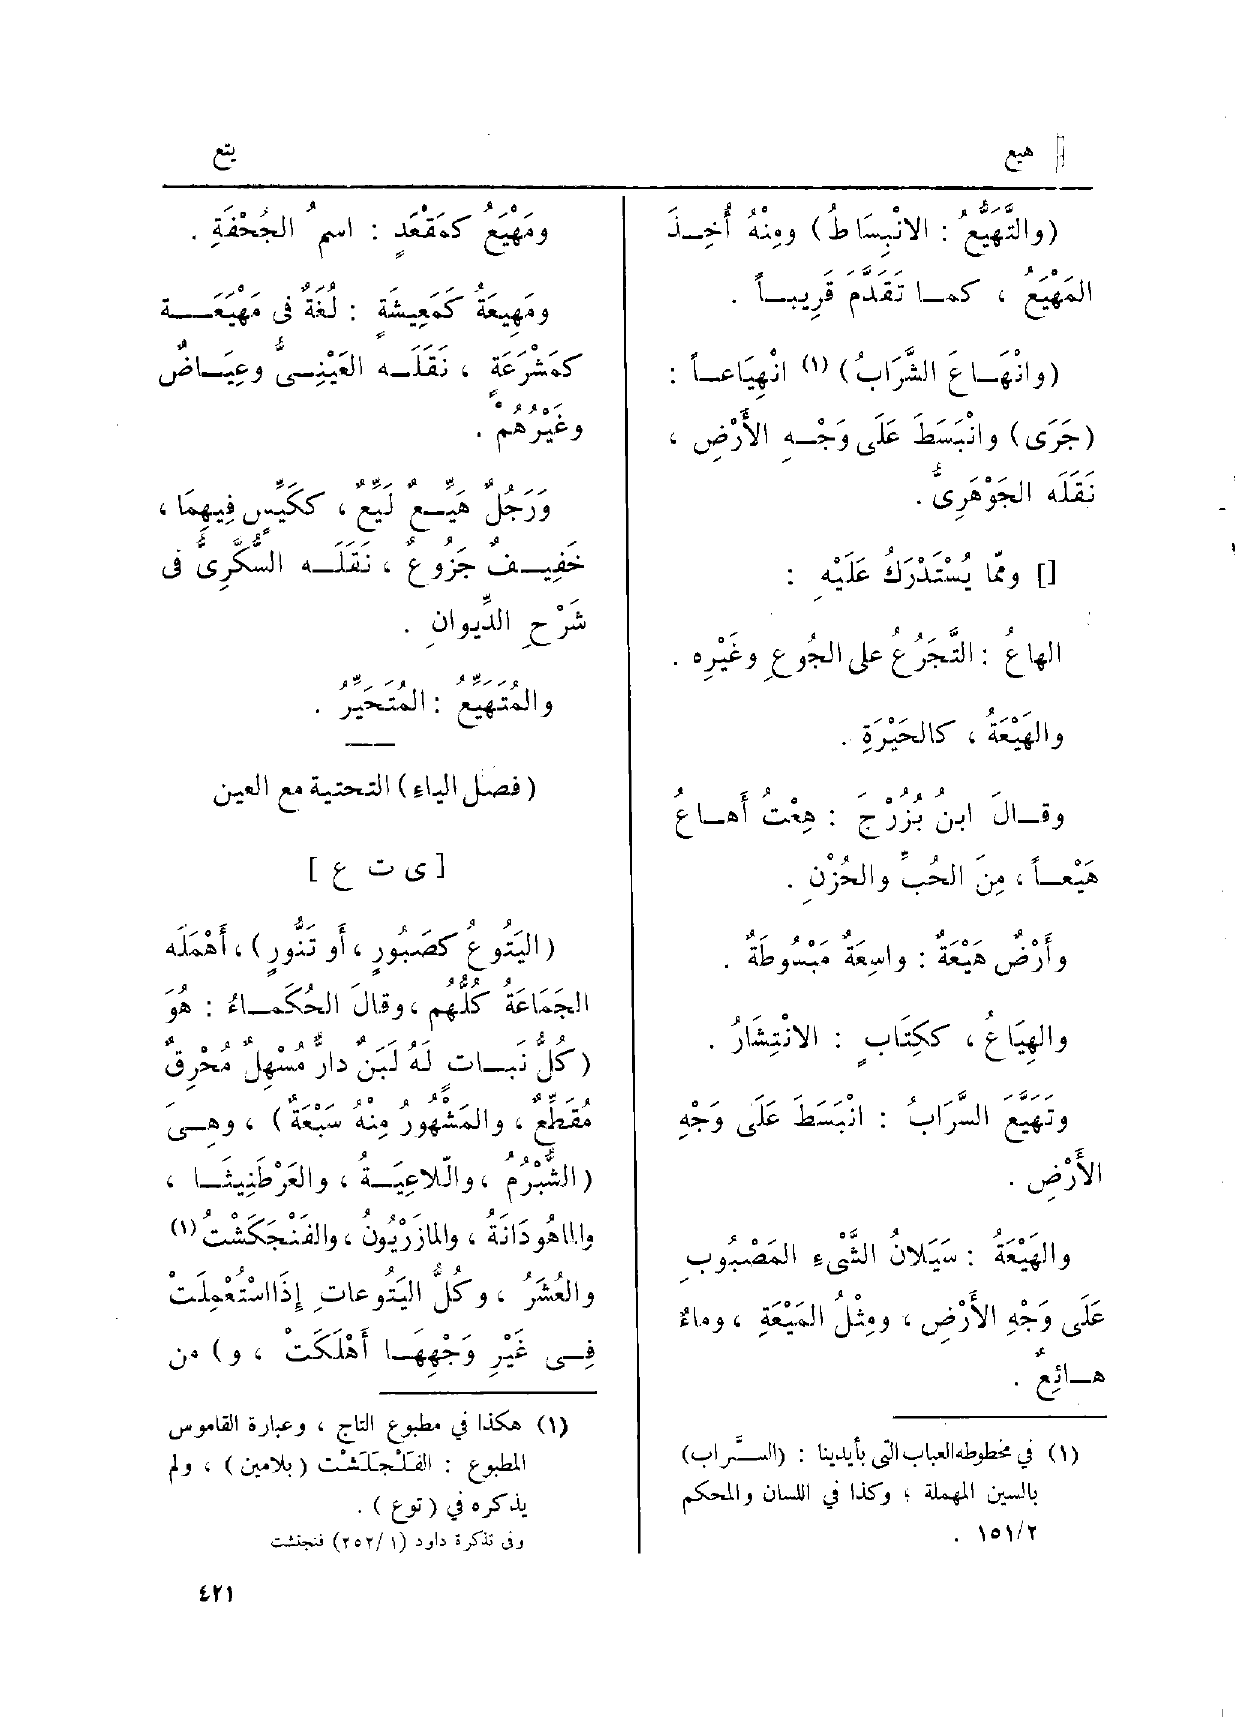 هيع
يتع
(والتَّهَيُّعُ : الانْبِسَاطُ) ومِنْهُ أُخِـذَ
المَهْيَعُ ، كمـا تَقَدَّم قَرِيبـاً .
(وانْهَـاعَ الشَّرَابُ) (١) انْهِيَاعـاً :
(جَرَى) وانْبَسَطَ عَلَى وَجْـهِ الأَرْضِ ،
نَقَلَه الجَوْهَرِىُّ .
[] وممّا يُسْتَدْرَكُ عَلَيْهِ :
الهاعُ : التَّجَرُّعُ على الجُوعِ وغَيْرِه .
والهَيْعَةُ ، كالحَيْرَةِ .
وقـالَ ابنُ بُزُرْجَ : هِعْتُ أَهـاعُ
هَيْعـاً ، مِنَ الحُبِّ والحُزْنِ .
وأَرْضٌ هَيْعَةٌ : واسِعَةٌ مَبْسُوطَةٌ .
والهِيَاعُ ، ككِتَابٍ : الانْتِشَارُ .
وتَهَيَّعَ السَّرَابُ : انْبَسَطَ عَلَى وَجْهِ
الأَرْضِ .
والهَيْعَةُ : سَيَلانُ الشَّىْءِ المَصْبُوبِ
عَلَى وَجْهِ الأَرْضِ ، ومِثْلُ المَيْعَةِ ، وماءٌ
هـائِعٌ .
(١) في مخطوطه العباب التى بأيدينا : (السَّـراب)
بالسين المهملة ؛ وكذا في اللسان والمحكم
٢/١٥١ .
ومَهْيَعُ كمَقْعَدٍ : اسمُ الجُحْفَةِ .
ومَهِيعَةُ كمَعِيشَةٍ : لُغَةٌ فى مَهْيَعَـــة
كمَشْرَعَةٍ ، نَقَلَـه العَيْنِـىُّ وعِيَـاضٌ
وغَيْرُهُمْ .
ورَجُلٌ هَيِّـعٌ لَيِّعٌ ، ككَيِّسٍ فِيهِمَا ،
خَفِيـفٌ جَزُوعٌ ، نَقَلَـه السُّكَّرِىُّ فى
شَرْحِ الدِّيوانِ .
والمُتَهَيِّعُ : المُتَحَيِّرُ .
(فصل الياء) التحتية مع العين
[ ى ت ع ]
(اليَتُوعُ كصَبُورٍ ، أو تَنُّورٍ) ، أَهْمَلَه
الجَمَاعَةُ كُلُّهُم ، وقالَ الحُكَمـاءُ : هُوَ
(كُلُّ نَبـاتٍ لَهُ لَبَنٌ دارٌّ مُسْهِلٌ مُحْرِقٌ
مُقَطِّعٌ ، والمَشْهُورُ مِنْهُ سَبْعَةٌ) ، وهِـىَ
(الشُّبْرُمُ ، واللّاعِيَـةُ ، والعَرْطَنِيثَـا ،
والماهُودَانَةُ ، والمازَرْيُونُ ، والفَنْجَكَشْتُ (١)
والعُشَرُ ، وكُلُّ اليَتُوعاتِ إِذَا اسْتُعْمِلَتْ
فِـى غَيْرِ وَجْهِهَـا أَهْلَكَتْ ، و) من
(١) هكذا في مطبوع التاج ، وعبارة القاموس
المطبوع : الفَلَنْجَلَشْت (بلامين) ، ولم
يذكره في (توع) .
وفى تذكرة داود (١/ ٢٥٢) فنجنشت
٤٢١